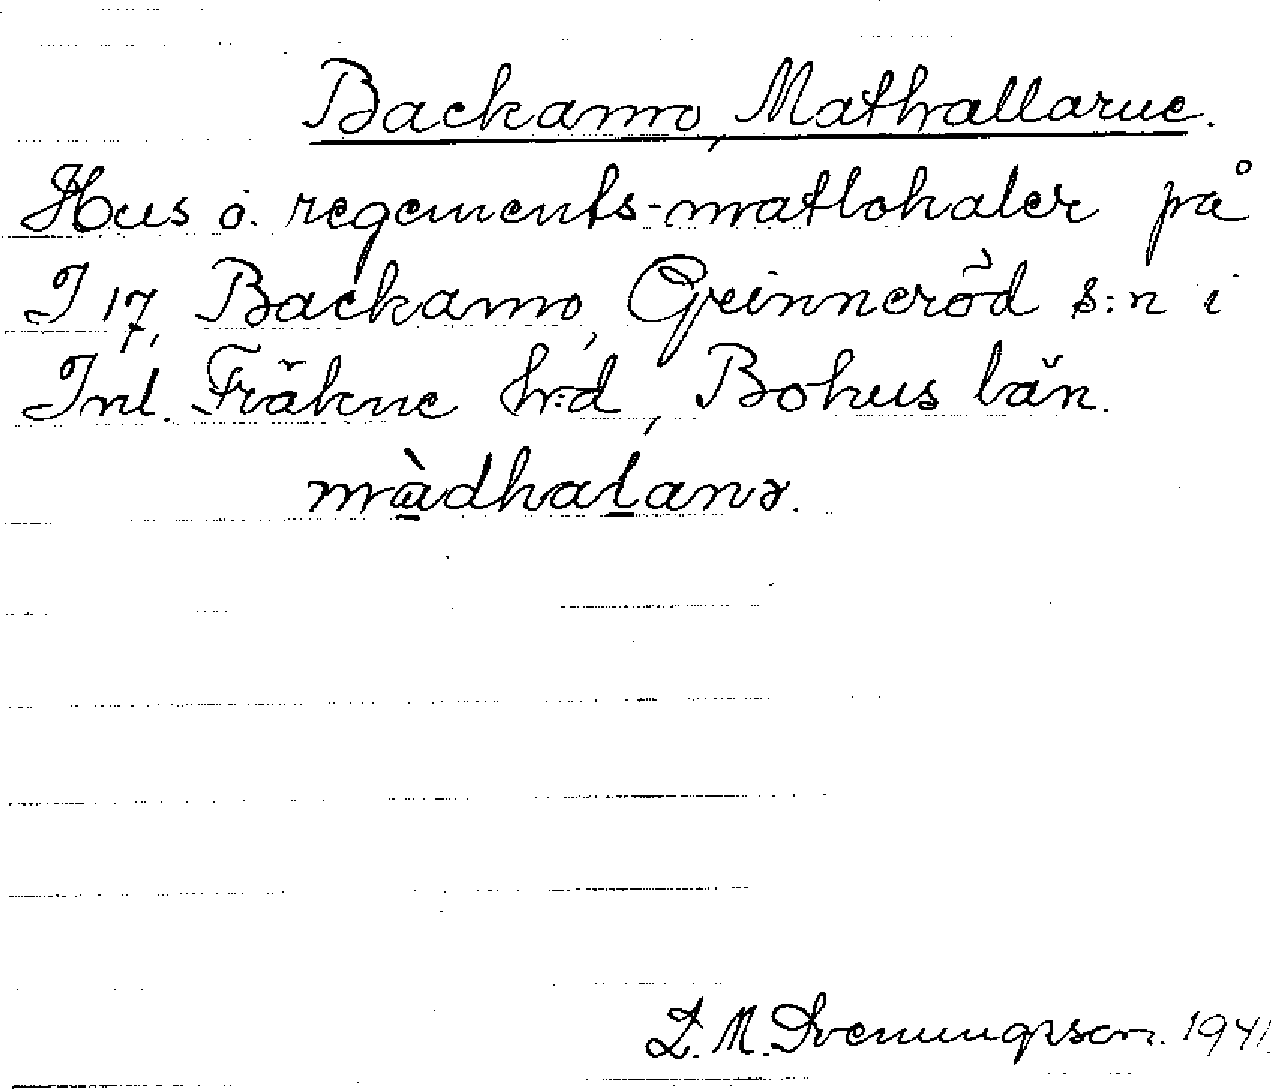 Backamo, Mathallarne.
Hus o. regements-matlokaler på
I 17, Backamo, Grinneröd s:n i
Inl. Fräkne hrd, Bohus län.
màdhalanə.
L. M. Svenungsson. 1941